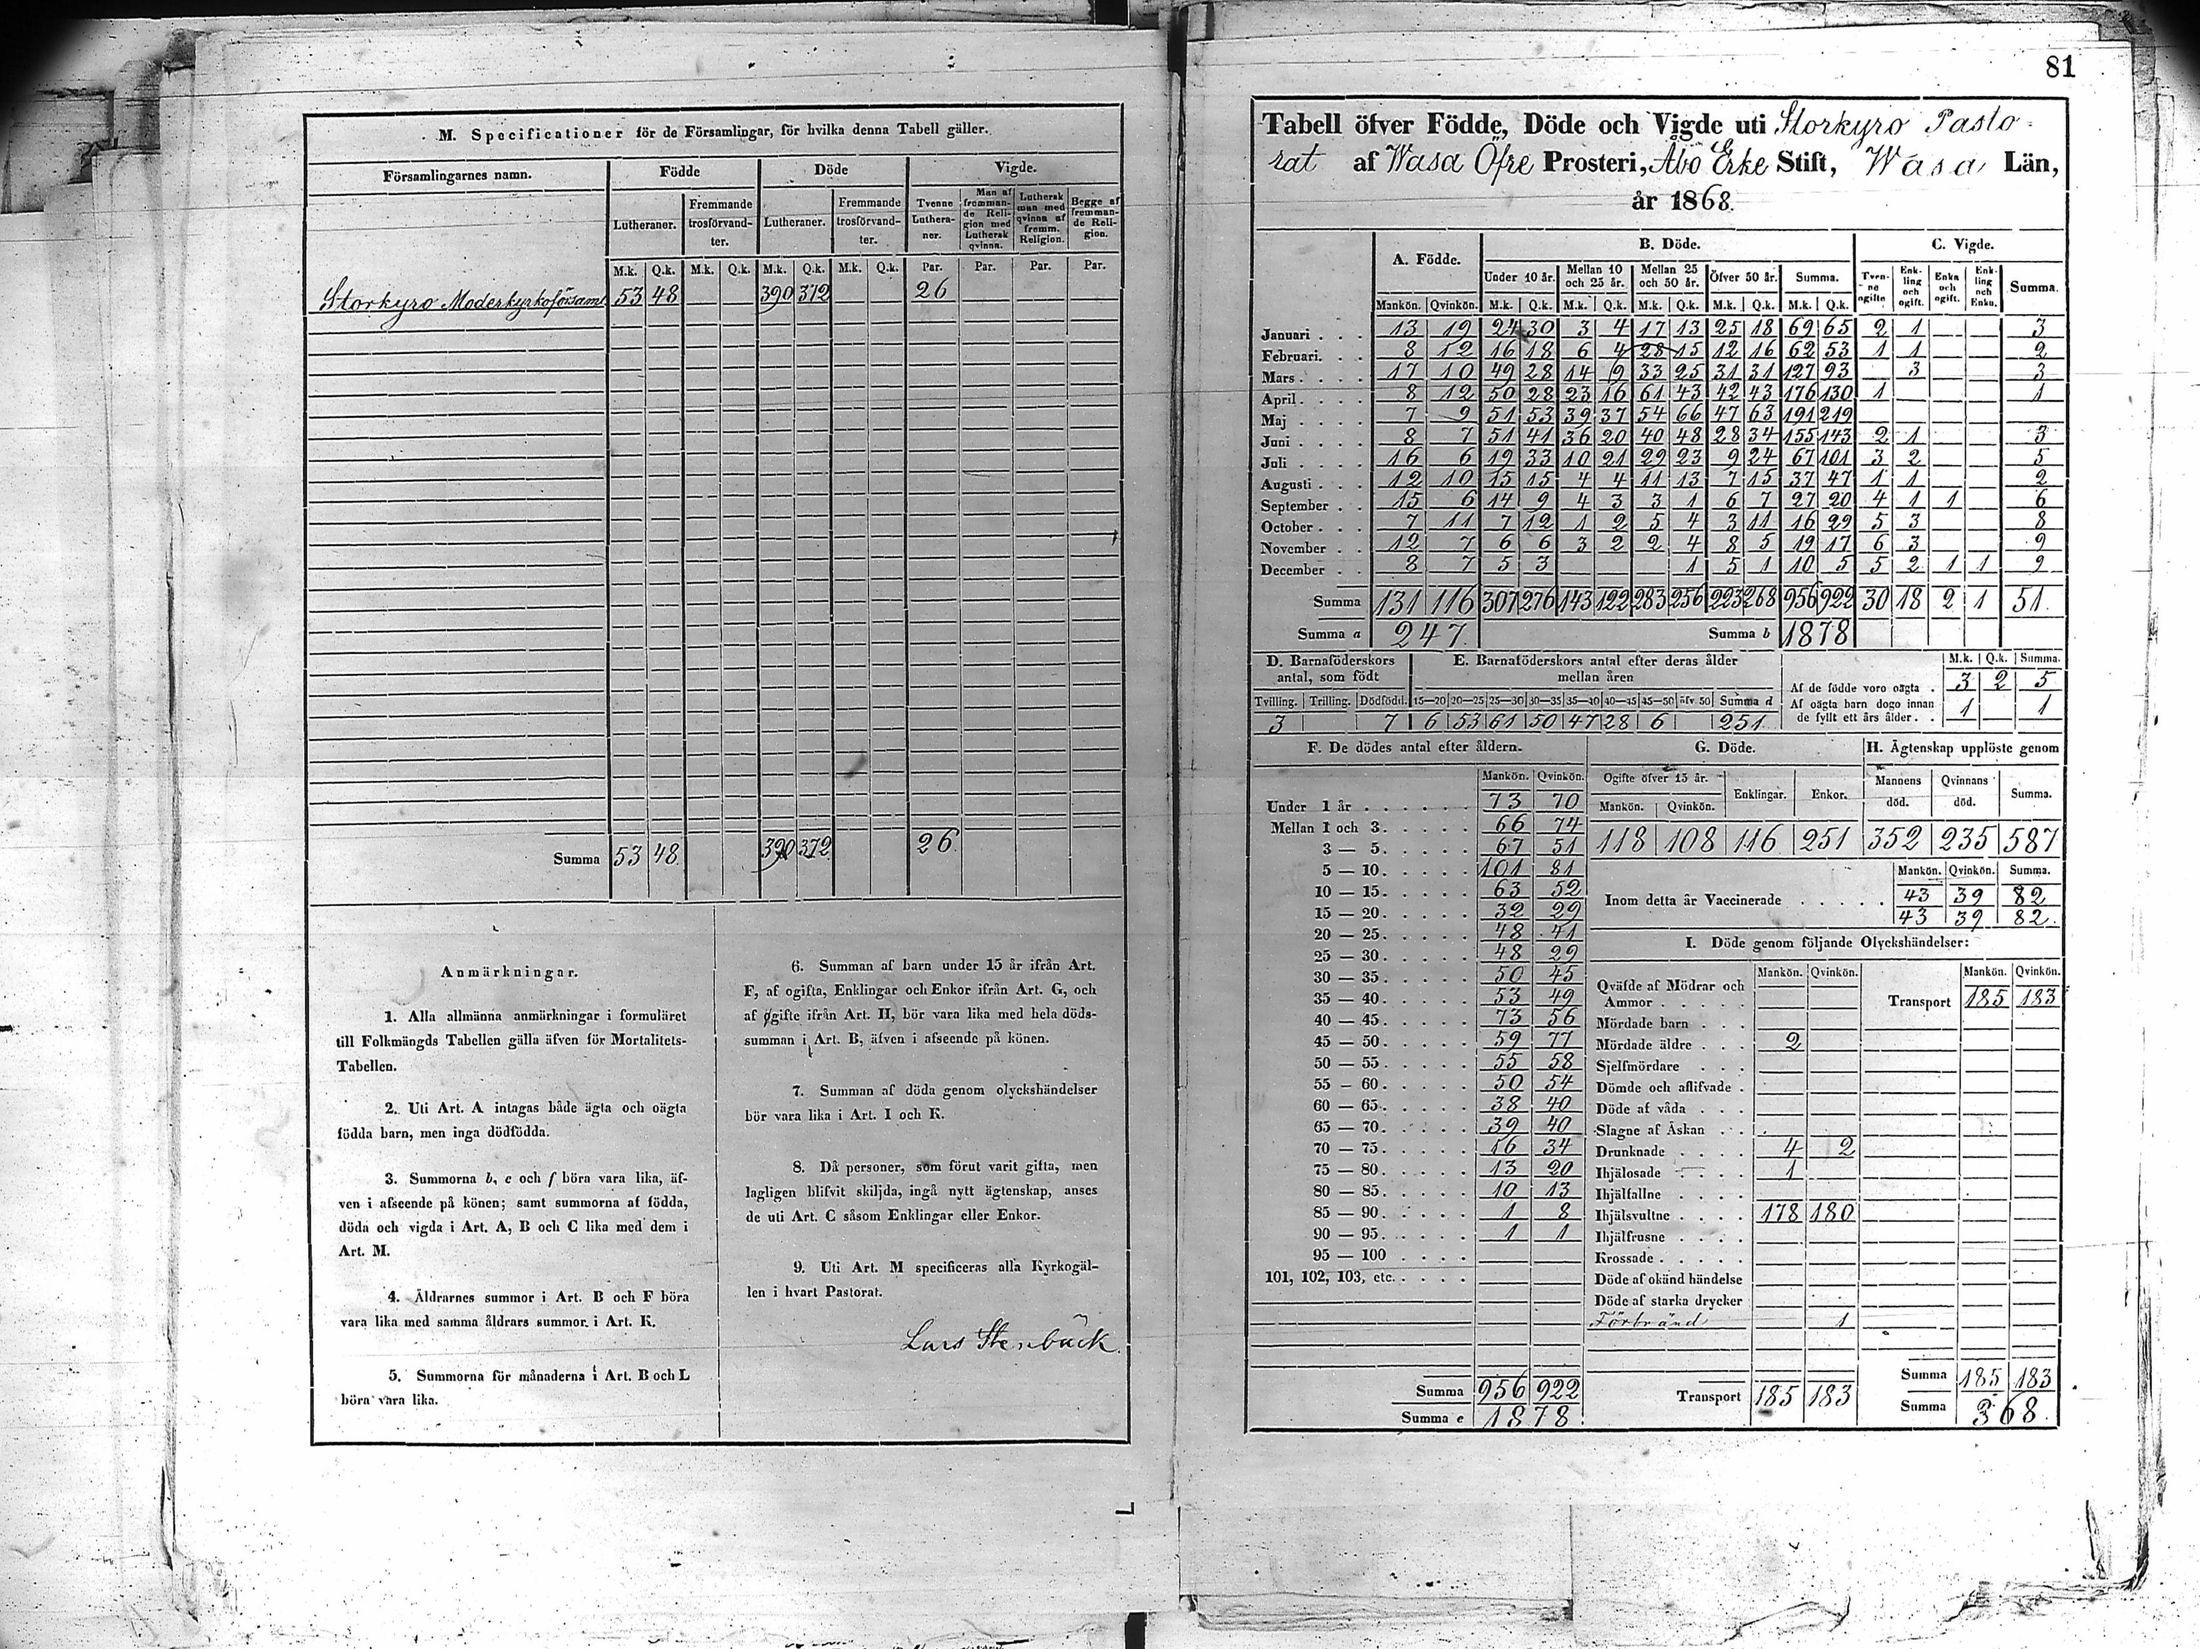 M. Specificationer för de Församlingar, för hvilka denna Tabell gäller.
Församlingarnes namn. Födde Döde Vigde.
Lutheraner. Fremmande trosförvandter. Lutheraner. Fremmande trosförvandter. Tvenne Lutheraner. Man af fremmande Religion med Luthersk qvinna. Luthersk man med qvinna af fremm. Religion. Begge af fremmande Religion.
M.k. Q.k. M.k. Q.k. M.k. Q.k. M.k. Q.k. Par. Par. Par. Par.
Storkyro Moderkyrkoförsaml 53 48 390 312 26
Summa 53 48 390 372 26
Anmärkningar.
1. Alla allmänna anmärkningar i formuläret
till Folkmängds Tabellen gälla äfven för Mortalitets-
Tabellen.
2. Uti Art. A intagas både ägta och oägta
födda barn, men inga dödfödda.
3. Summorna b, e och f böra vara lika, äf-
ven i afseende på könen; samt summorna af födda,
döda och vigda i Art. A, B och C lika med dem i
Art. M.
4. Äldrarnes summor i Art. B och F böra
vara lika med samma åldrars summor i Art. K.
5. Summorna för månaderna i Art. B och L
böra vara lika.
6. Summan af barn under 15 år ifrån Art.
F, af ogifta, Enklingar och Enkor ifrån Art. G, och
af gifte ifrån Art. H, bör vara lika med hela döds-
summan i Art. B, äfven i afseende på könen.
7. Summan af döda genom olyckshändelser
bör vara lika i Art. I och K.
8. Då personer, som förut varit gifta, men
lagligen blifvit skiljda, ingå nytt ägtenskap, anses
de uti Art. C såsom Enklingar eller Enkor.
9. Uti Art. M specificeras alla Kyrkogäl-
len i hvart Pastorat.
Lars Stenbäck.
81
Tabell öfver Födde, Döde och Vigde uti Storkyro Pasto-
rat af Wasa Öfre Prosteri, Åbo Erke Stift, Wasa Län,
år 1868.
A. Födde. B. Döde. C. Vigde.
Under 10 år. Mellan 10 och 25 år. Mellan 25 och 50 år. Öfver 50 år. Summa. Tvenne ogifte Enkling och ogift. Enka och ogift. Enkling och Enka. Summa.
Mankön. Qvinkön. M.k. Q.k. M.k. Q.k. M.k. Q.k. M.k. Q.k. M.k. Q.k.
Januari 13 19 24 30 3 4 17 13 25 18 69 65 2 1 3
Februari 8 12 16 18 6 4 28 15 12 16 62 53 1 1 2
Mars 17 10 49 28 14 9 33 25 31 31 127 93 3 3
April 8 12 50 28 23 16 61 43 42 43 176 130 1 1
Maj 7 9 51 53 39 37 54 66 47 63 191 219
Juni 8 7 51 41 36 20 40 48 28 34 155 143 2 1 3
Juli 16 6 19 33 10 21 29 23 9 24 67 101 3 2 5
Augusti 12 10 15 15 4 4 11 13 7 15 37 47 1 1 2
September 15 6 14 9 4 3 3 1 6 7 27 20 4 1 1 6
October 7 11 7 12 1 2 5 4 3 11 16 29 5 3 8
November 12 7 6 6 3 2 2 4 8 5 19 17 6 3 9
December 8 7 5 3 1 5 1 10 5 5 2 1 1 9
Summa 131 116 307 276 143 122 283 256 223 268 956 922 30 18 2 1 51.
Summa a 247. Summa b 1878
D. Barnaföderskors antal, som födt
Tvilling. Trilling. Dödfödd.
3 7
E. Barnaföderskors antal efter deras ålder mellan åren
15—20 20—25 25—30 30—35 35—40 40—45 45—50 öfv 50 Summa d
6 53 61 50 47 28 6 251
M.k. Q.k. Summa.
Af de födde voro oägta 3 2 5
Af oägta barn dogo innan de fyllt ett års ålder 1 1
F. De dödes antal efter åldern.
Mankön. Qvinkön.
Under 1 år 73 70
Mellan 1 och 3 66 74
3 — 5 67 51
5 — 10 101 81
10 — 15 63 52
15 — 20 32 29
20 — 25 48 41
25 — 30 48 29
30 — 35 50 45
35 — 40 53 49
40 — 45 73 56
45 — 50 59 77
50 — 55 55 58
55 — 60 50 54
60 — 65 38 40
65 — 70 39 40
70 — 75 16 34
75 — 80 13 20
80 — 85 10 13
85 — 90 1 8
90 — 95 1 1
95 — 100
101, 102, 103, etc.
Summa 956 922
Summa e 1878.
G. Döde.
Ogifte öfver 15 år. Enklingar. Enkor.
Mankön. Qvinkön.
118 108 116 251
H. Ägtenskap upplöste genom
Mannens död. Qvinnans död. Summa.
352 235 587
Mankön. Qvinkön. Summa.
Inom detta år Vaccinerade 43 39 82
43 39 82.
I. Döde genom följande Olyckshändelser:
Mankön. Qvinkön. Mankön. Qvinkön.
Qväfde af Mödrar och Ammor
Transport 185 183
Mördade barn
Mördade äldre 2
Sjelfmördare
Dömde och aflifvade
Döde af våda
Slagne af Åskan
Drunknade 4 2
Ihjälosade 1
Ihjälfallne
Ihjälsvultne 178 180
Ihjälfrusne
Krossade
Döde af okänd händelse
Döde af starka drycker
Förbränd 1
Transport 185 183
Summa 185 183
Summa 368.